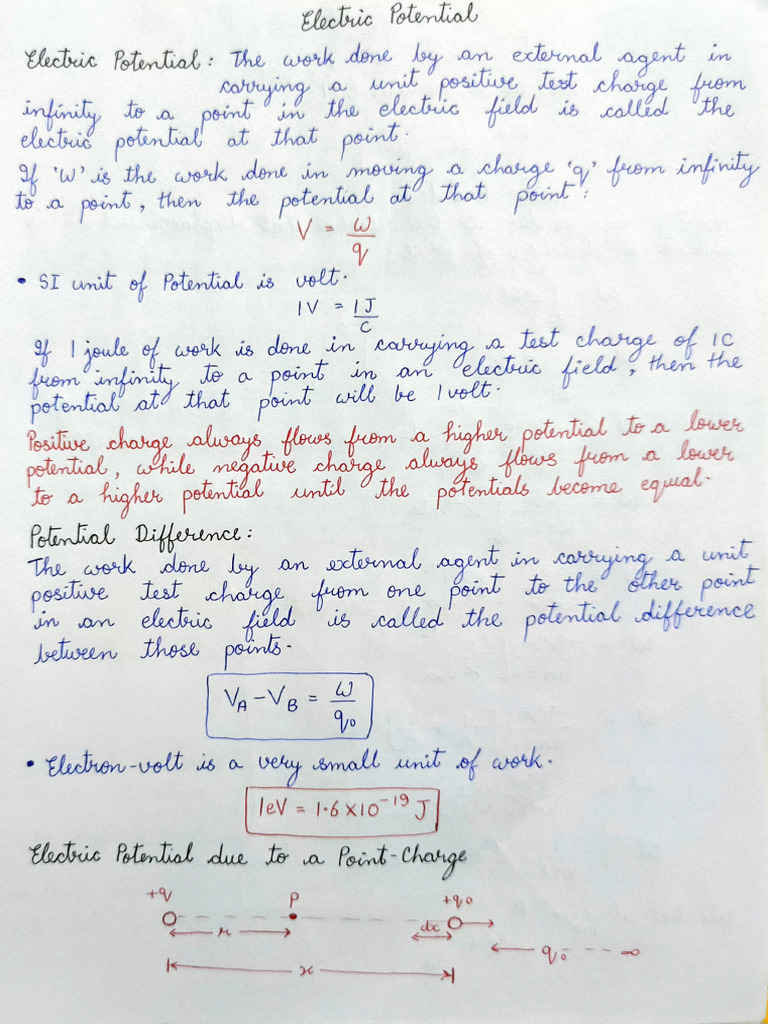 Electric Potential
Electric Potential: The work done by an external agent in
carrying a unit positive test charge from
infinity to a point in the electric field is called the
electric potential at that point.
If 'W' is the work done in moving a charge 'q' from infinity
to a point, then the potential at that point:
V = W/q
• SI unit of Potential is volt.
1V = 1J/C
If 1 joule of work is done in carrying a test charge of 1C
from infinity to a point in an electric field, then the
potential at that point will be 1 volt.
Positive charge always flows from a higher potential to a lower
potential, while negative charge always flows from a lower
to a higher potential until the potentials become equal.
Potential Difference:
The work done by an external agent in carrying a unit
positive test charge from one point to the other point
in an electric field is called the potential difference
between those points.
V_A - V_B = W/q₀
• Electron-volt is a very small unit of work.
1eV = 1.6×10⁻¹⁹ J
Electric Potential due to a Point-Charge
+q P +q₀
r dx q₀ ∞
x